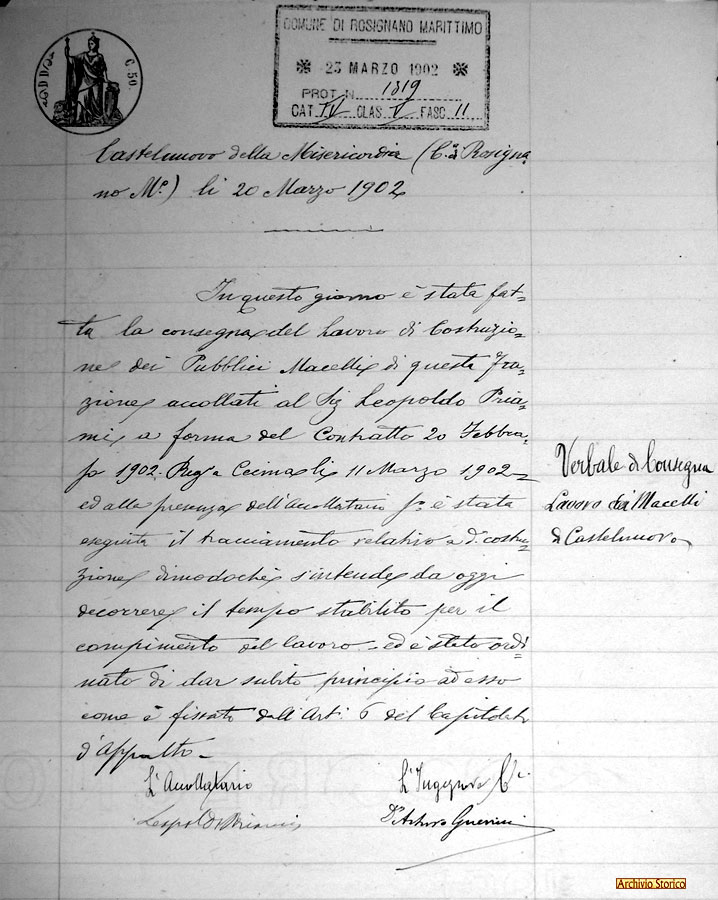 C. 50
COMUNE DI ROSIGNANO MARITTIMO
23 MARZO 1902
PROT. N. 1819
CAT. IV CLAS. V FASC. 11
Castelnuovo della Misericordia (C.e di Rosigna=
no M.o) li 20 Marzo 1902
In questo giorno è stata fat=
ta la consegna del lavoro di Costruzio=
ne dei Pubblici Macelli di questa Fra=
zione accollati al Sig Leopoldo Pria=
mi a forma del Contratto 20 Febbra=
jo 1902. Reg. a Cecina li 11 Marzo 1902=
ed alla presenza dell'Accollatario è stata
eseguita il tracciamento relativo a d. costru=
zione dimodochè s'intende da oggi
decorrere il tempo stabilito per il
compimento del lavoro - ed è stato ordi=
nato di dar subito principio ad esso
come è fissato dall'Art. 6 del Capitolato
d'Appalto -
L'Accollatario
Leopoldo Priami
L'Ingegnere C.
D. Arturo Guerrini
Verbale di Consegna
Lavoro dei Macelli
di Castelnuovo
Archivio Storico